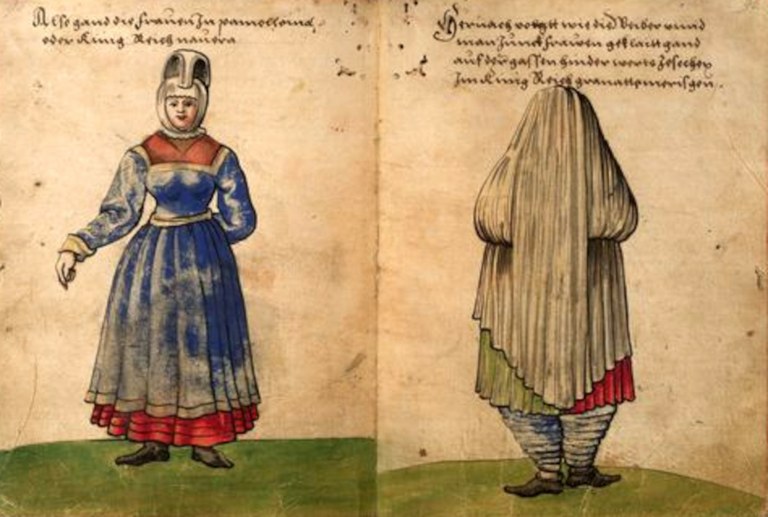 Also gand die frauen In pamolloina
oder Kinig Reich nauera
Hernach volgtt wie die Weiber vnnd
man Junckfrawen geklaitt gand
auf der gassen hinder werts Zesechen
Im Kinig Reich